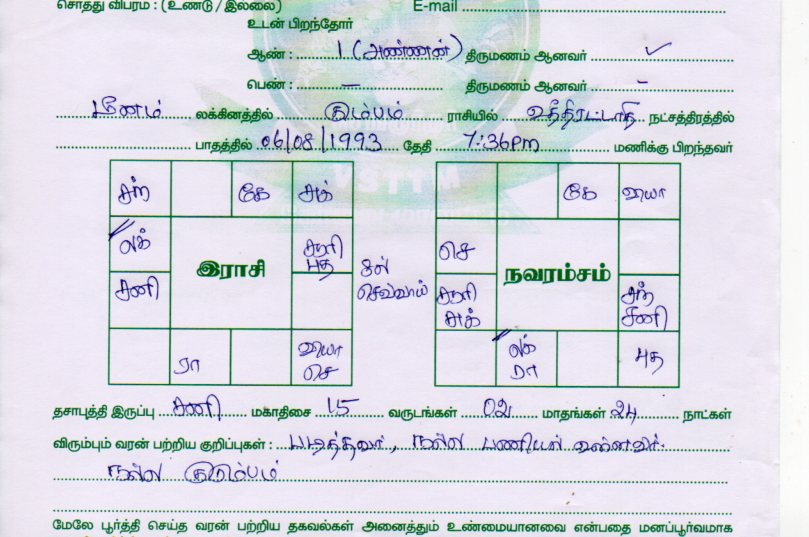 சொத்து விபரம் : (உண்டு / இல்லை) E-mail
உடன் பிறந்தோர்
ஆண் : 1 (அண்ணன்) திருமணம் ஆனவர் ✓
பெண் : — திருமணம் ஆனவர் -
மீனம் லக்கினத்தில் கும்பம் ராசியில் உத்திரட்டாதி நட்சத்திரத்தில்
பாதத்தில் 06/08/1993 தேதி 7:36Pm மணிக்கு பிறந்தவர்
சந் கே சுக் கே வியா
லக் சூரி புத செ
இராசி நவரம்சம்
சனி 8ல் செவ்வாய் சூரி சுக் சந் சனி
ரா வியா செ லக் ரா புத
தசாபுத்தி இருப்பு சனி மகாதிசை 15 வருடங்கள் 02 மாதங்கள் 24 நாட்கள்
விரும்பும் வரன் பற்றிய குறிப்புகள் : படித்தவர், நல்ல பணியில் உள்ளவர்.
நல்ல குடும்பம்
மேலே பூர்த்தி செய்த வரன் பற்றிய தகவல்கள் அனைத்தும் உண்மையானவை என்பதை மனப்பூர்வமாக